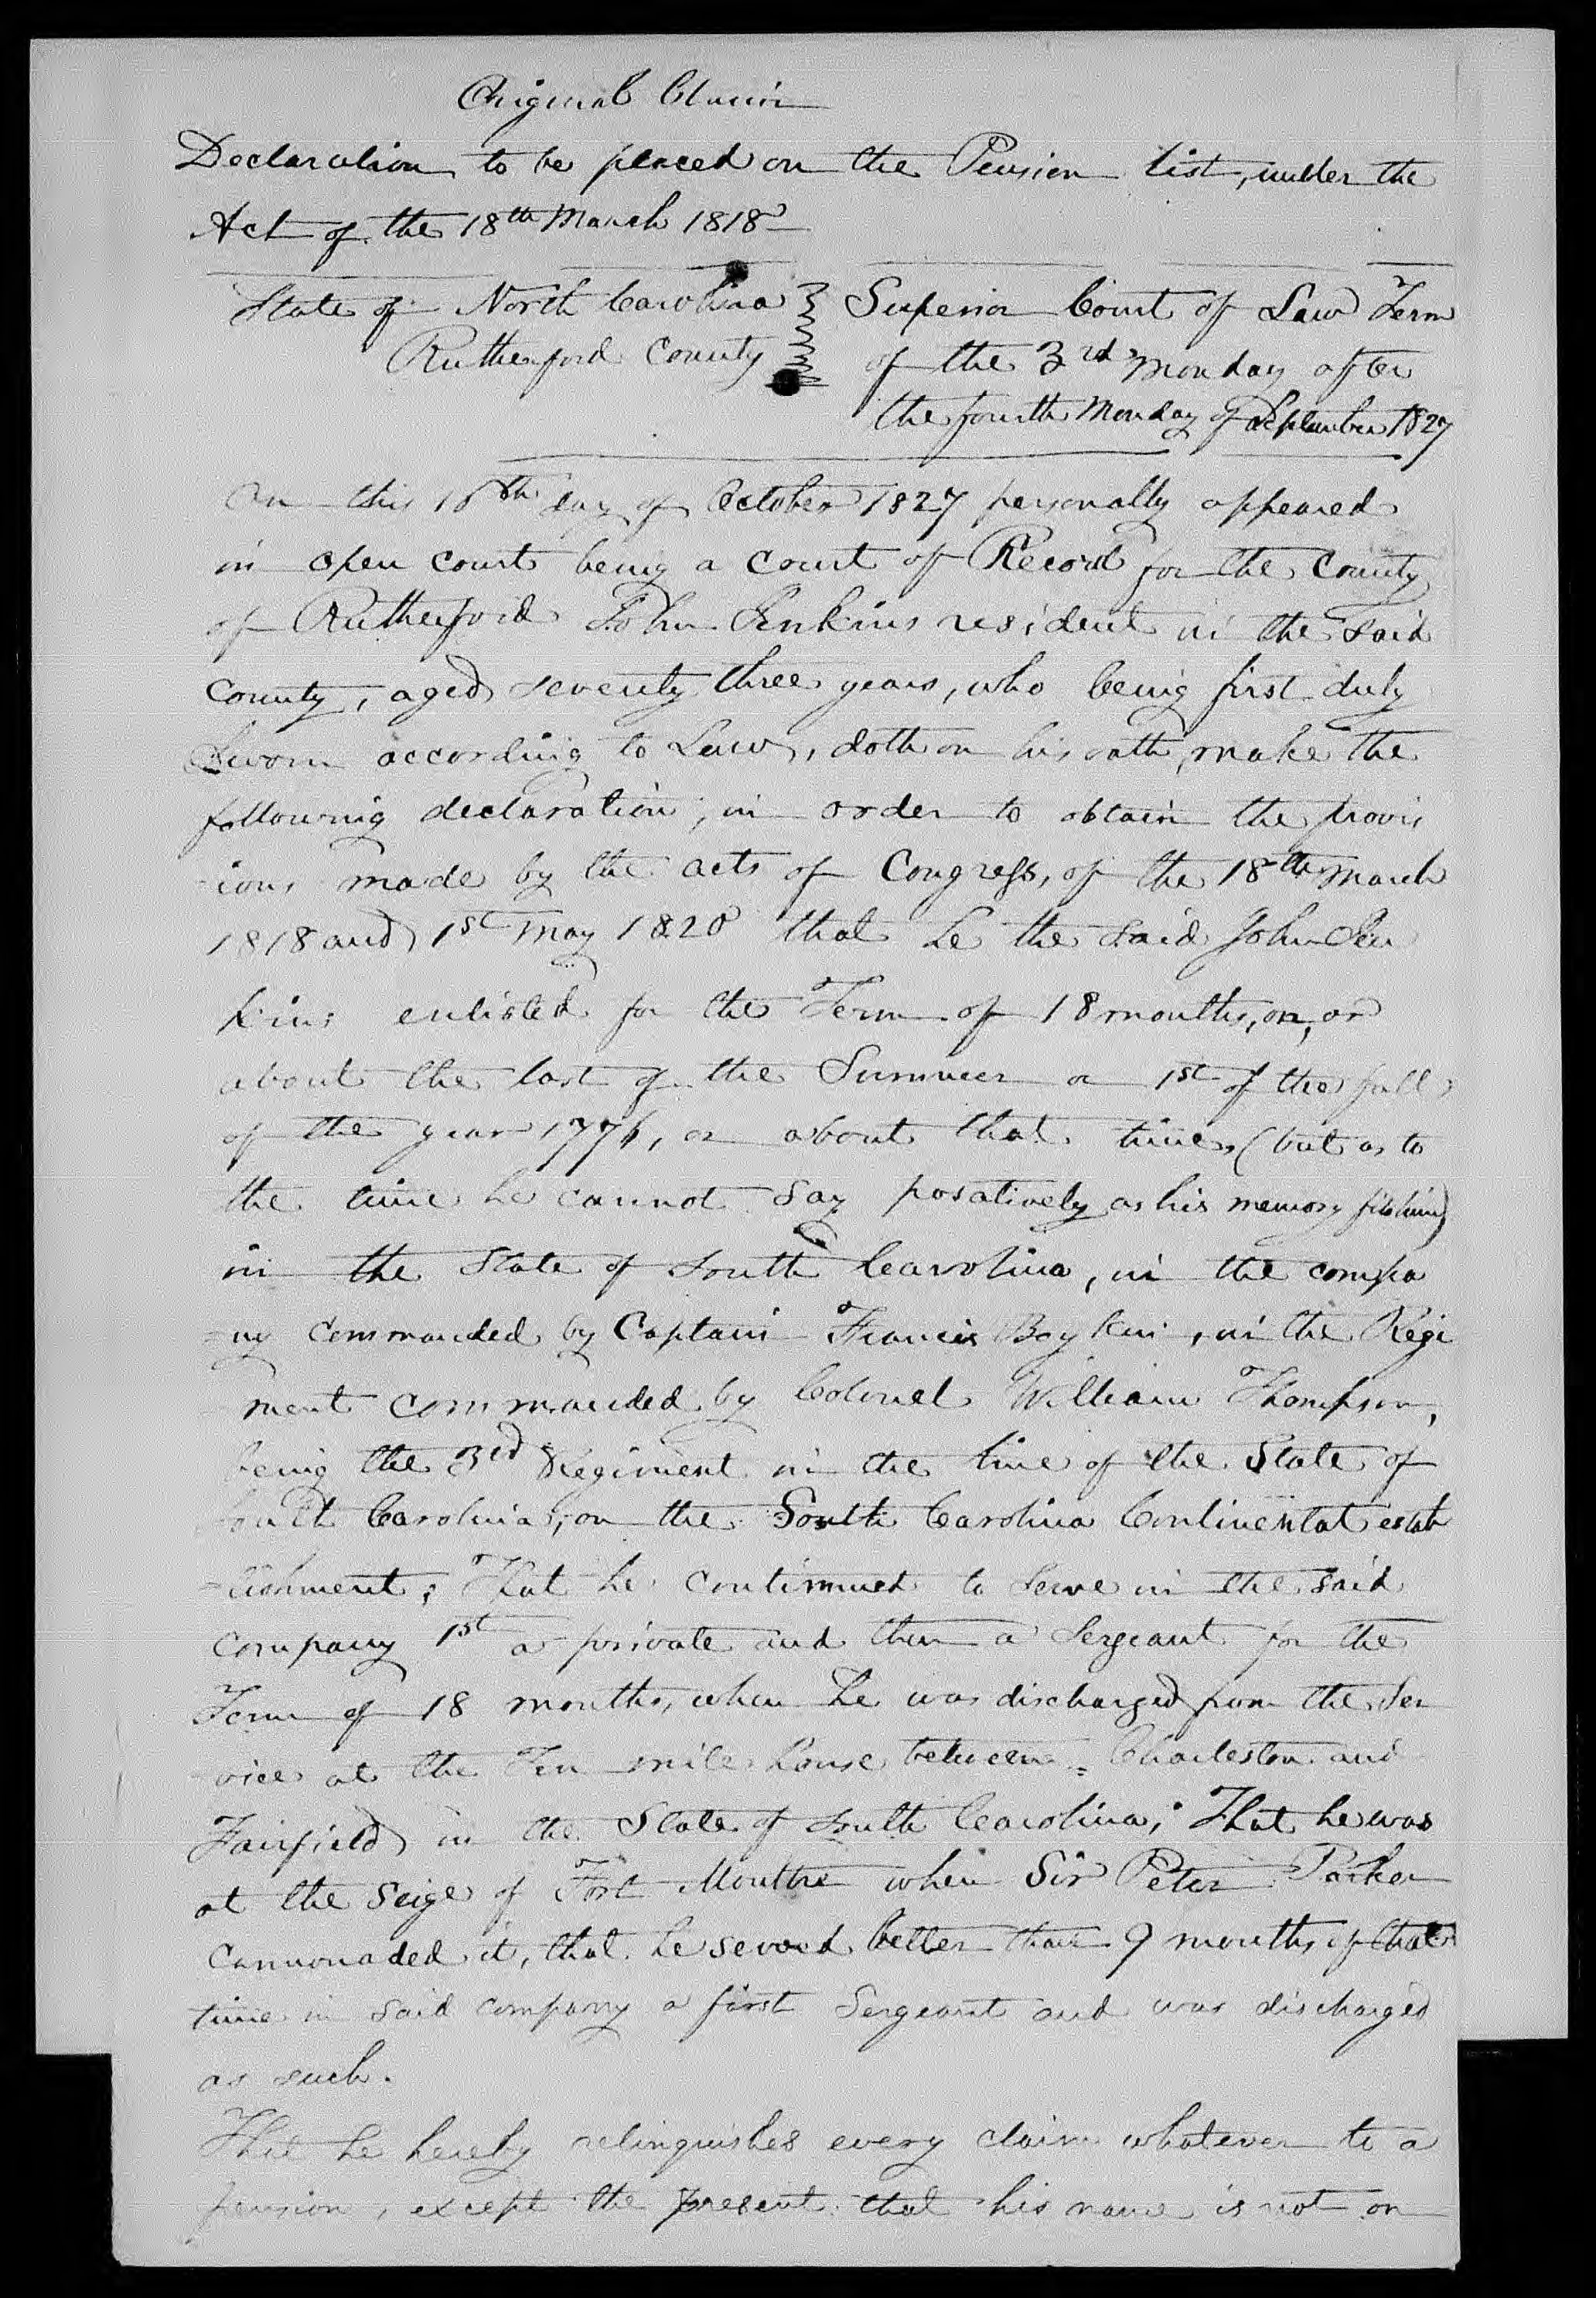 Original Claim
Declaration to be placed on the Pension list, under the
Act of the 18th March 1818
State of North Carolina } Superior Court of Law Term
Rutherford County } of the 3rd Monday after
the fourth Monday of September 1827
On this day of October 1827 personally appeared
in open court being a court of Record for the County
of Rutherford John Jenkins resident in the said
County, aged seventy three years, who being first duly
Sworn according to Law, doth on his oath, make the
following declaration, in order to obtain the provis
-ions made by the acts of Congress, of the 18th March
1818 and 1st May 1820 that he the said John Jen
kins enlisted for the Term of 18 months, on, or
about the last of the Summer or 1st of the fall
of the year 1776, or about that time, (but as to
the time he cannot say posatively as his memory fails him)
in the State of South Carolina, in the compa
-ny commanded by Captain Francis Boykin, in the Regi
ment commanded by Colonel William Thompson,
being the 3rd Regiment in the line of the State of
South Carolina, on the South Carolina Continental estab
-lishment; That he continued to serve in the said
Company 1st a private and then a Sergeant for the
Term of 18 months, when he was discharged from the Ser
-vice at the Ten mile house between Charleston and
Fairfield in the State of South Carolina; That he was
at the Seige of Fort Moultre when Sir Peter Parker
Cannonaded it, that he served better than 9 months of that
time in said company a first Sergeant and was discharged
as such.
That he hereby relinquishes every claim whatever to a
pension, except the present. that his name is not on